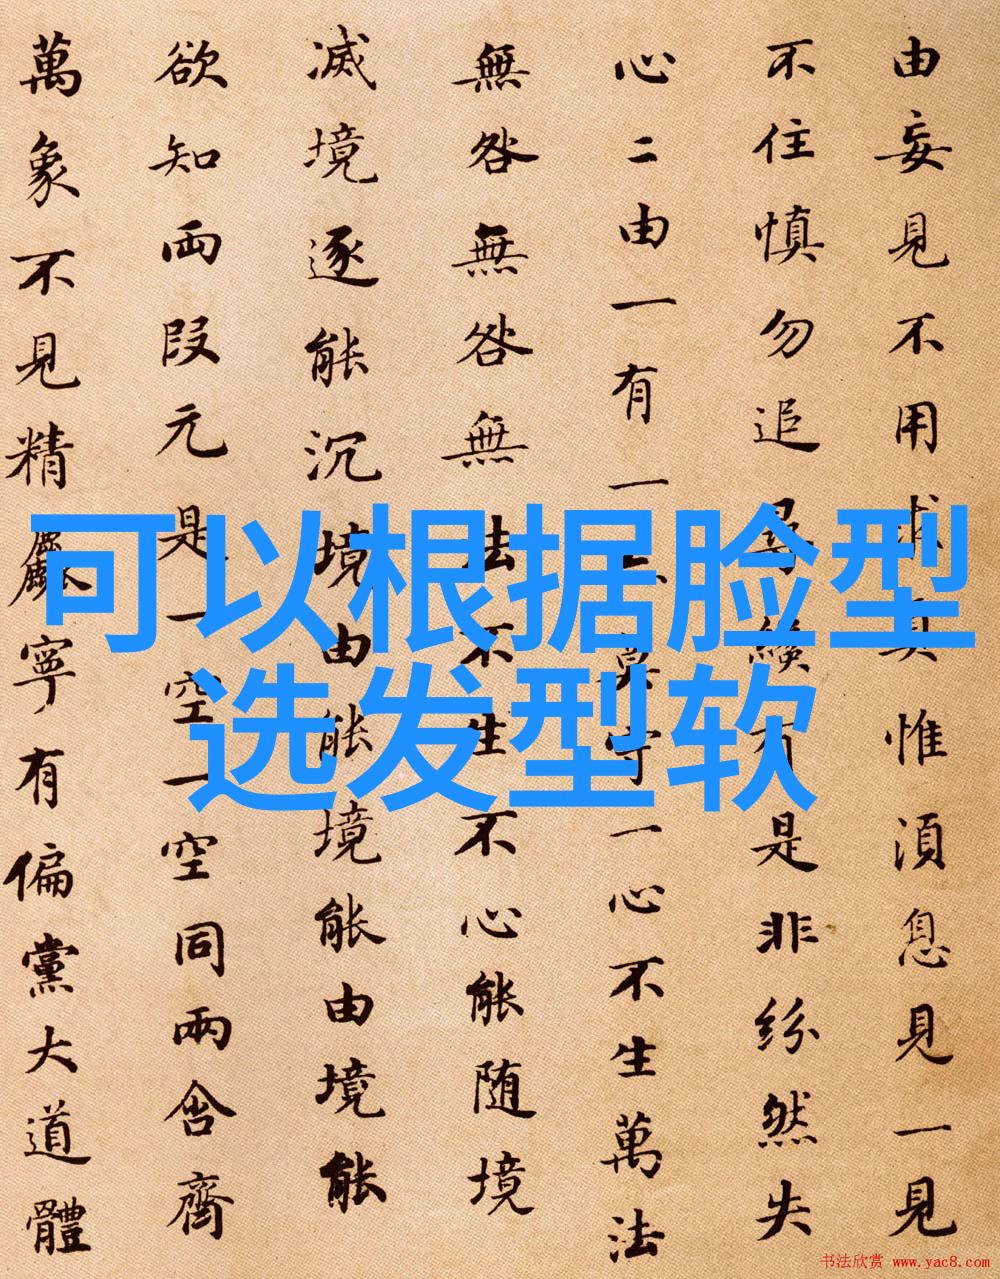 由妄見不用求真惟湏息見一見
不住慎勿追尋纔有是非紛然失
心二由一有一亦莫守一心不生萬法
無咎無咎無法不生不心能随境
滅境逐能沉境由能境能由境能
欲知両段元是一空一空同兩含齊
萬象不見精麤寧有偏黨大道體
可以根据脸型
选发型软
书法欣赏 www.yac8.com